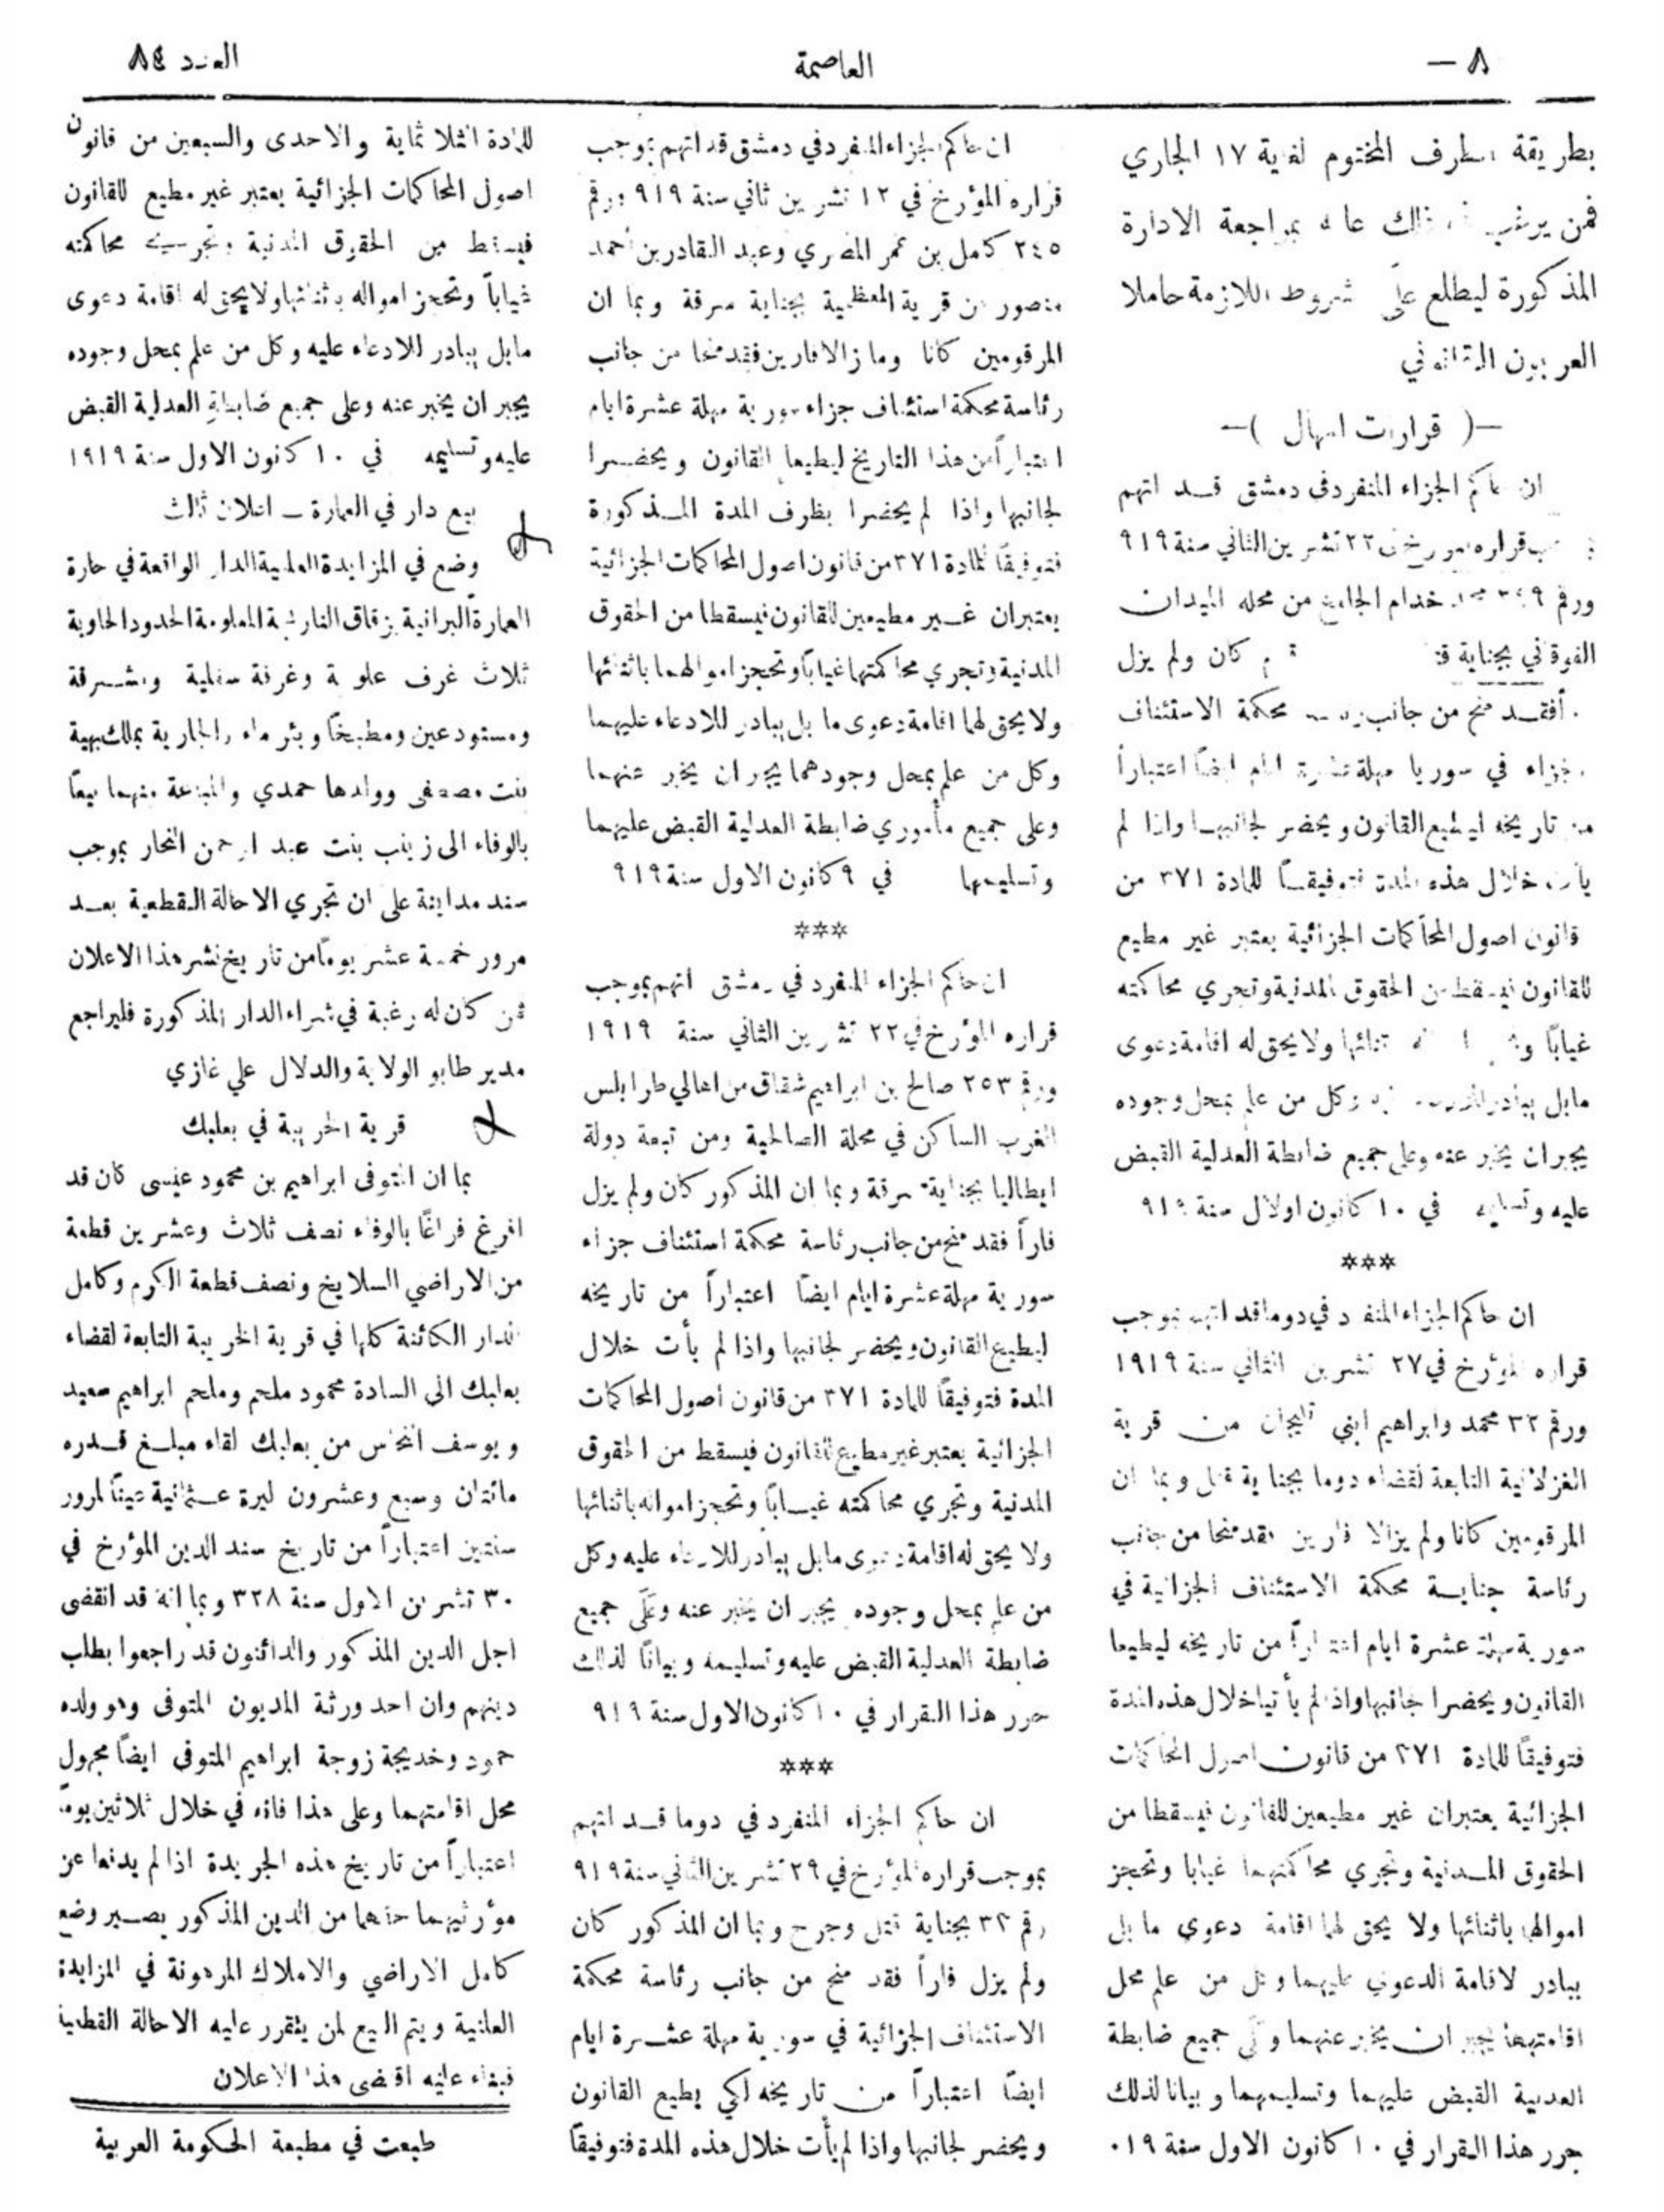 ٨ —
العاصمة
العدد ٨٤
بطريقة الظرف المختوم لغاية ١٧ الجاري
فمن يرغب في ذلك بمراجعة الادارة
المذكورة ليطلع على شروط اللازمة حاملا
العربون القانوني
—( قرارات امهال )—
ان حاكم الجزاء المنفرد في دمشق قد اتهم
قراره ٢٢ تشرين الثاني سنة ٩١٩
ورقم خدام الجامع من محله الميدان
الفوقاني بجناية كان ولم يزل
فقد منح من جانب محكمة الاستئناف
جزاء في سوريا مهلة عشرة ايام ايضاً اعتباراً
من تاريخه ليطيع القانون ويحضر لجانبها واذا لم
يأت خلال هذه المدة فتوفيقاً للمادة ٣٧١ من
قانون اصول المحاكمات الجزائية يعتبر غير مطيع
للقانون فيسقط من الحقوق المدنية وتجري محاكمته
غياباً ولا يحق له اقامة دعوى
مابل يبادر وكل من علم بمحل وجوده
يجبر ان يخبر عنه وعلى جميع ضابطة العدلية القبض
عليه وتسليمه في ١٠ كانون اولال سنة ٩١٩
***
ان حاكم الجزاء المنفرد في دوما قد اتهم بموجب
قراره المؤرخ في ٢٧ تشرين الثاني سنة ١٩١٩
ورقم ٣٢ محمد وابراهيم ابني من قرية
الغزلانية التابعة لقضاء دوما بجناية قتل وبما ان
المرقومين كانا ولم يزالا فارين فقد منحا من جانب
رئاسة جناية محكمة الاستئناف الجزائية في
سورية مهلة عشرة ايام اعتباراً من تاريخه ليطيعا
القانون ويحضرا لجانبها واذا لم يأتيا خلال هذه المدة
فتوفيقاً للمادة ٣٧١ من قانون اصول المحاكمات
الجزائية يعتبران غير مطيعين للقانون فيسقطا من
الحقوق المدنية وتجري محاكمتهما غيابا وتحجز
اموالها باثنائها ولا يحق لهما اقامة دعوى ما بل
يبادر لاقامة الدعوى عليهما وكل من علم محل
اقامتهما يجبر ان يخبر عنهما وعلى جميع ضابطة
العدلية القبض عليهما وتسليمهما وبيانا لذلك
حرر هذا القرار في ١٠ كانون الاول سنة ٩١٩
ان حاكم الجزاء المنفرد في دمشق قد اتهم بموجب
قراره المؤرخ في ١٢ تشرين ثاني سنة ٩١٩ ورقم
٢٤٥ كامل بن عمر المصري وعبد القادر بن احمد
منصور من قرية المعظمية بجناية سرقة وبما ان
المرقومين كانا وما زالا فارين فقد منحا من جانب
رئاسة محكمة استئناف جزاء سورية مهلة عشرة ايام
اعتباراً من هذا التاريخ ليطيعا القانون ويحضرا
لجانبها واذا لم يحضرا بظرف المدة المذكورة
فتوفيقاً للمادة ٣٧١ من قانون اصول المحاكمات الجزائية
يعتبران غير مطيعين للقانون فيسقطا من الحقوق
المدنية وتجري محاكمتها غياباً وتحجز اموالهما باثنائها
ولا يحق لهما اقامة دعوى ما بل يبادر للادعاء عليهما
وكل من علم بمحل وجودهما يجبر ان يخبر عنهما
وعلى جميع مأموري ضابطة العدلية القبض عليهما
وتسليمهما في ٩ كانون الاول سنة ٩١٩
***
ان حاكم الجزاء المنفرد في دمشق اتهم بموجب
قراره المؤرخ في ٢٢ تشرين الثاني سنة ١٩١٩
ورقم ٢٥٣ صالح بن ابراهيم شقاق من اهالي طرابلس
الغرب الساكن في محلة الصالحية ومن تبعة دولة
ايطاليا بجناية سرقة وبما ان المذكور كان ولم يزل
فاراً فقد منح من جانب رئاسة محكمة استئناف جزاء
سورية مهلة عشرة ايام ايضاً اعتباراً من تاريخه
ليطيع القانون ويحضر لجانبها واذا لم يأت خلال
المدة فتوفيقاً للمادة ٣٧١ من قانون اصول المحاكمات
الجزائية يعتبر غير مطيع للقانون فيسقط من الحقوق
المدنية وتجري محاكمته غياباً وتحجز امواله باثنائها
ولا يحق له اقامة دعوى مابل يبادر للادعاء عليه وكل
من علم بمحل وجوده يجبر ان يخبر عنه وعلى جميع
ضابطة العدلية القبض عليه وتسليمه وبياناً لذلك
حرر هذا القرار في ١٠ كانون الاول سنة ٩١٩
***
ان حاكم الجزاء المنفرد في دوما قد اتهم
بموجب قراره المؤرخ في ٢٩ تشرين الثاني سنة ٩١٩
رقم ٣٢ بجناية قتل وجرح وبما ان المذكور كان
ولم يزل فاراً فقد منح من جانب رئاسة محكمة
الاستئناف الجزائية في سورية مهلة عشرة ايام
ايضاً اعتباراً من تاريخه لكي يطيع القانون
ويحضر لجانبها واذا لم يأت خلال هذه المدة فتوفيقاً
للمادة الثلاثماية والاحدى والسبعين من قانون
اصول المحاكمات الجزائية يعتبر غير مطيع للقانون
فيسقط من الحقوق المدنية وتجري محاكمته
غياباً وتحجز امواله باثنائها ولا يحق له اقامة دعوى
مابل يبادر للادعاء عليه وكل من علم بمحل وجوده
يجبر ان يخبر عنه وعلى جميع ضابطة العدلية القبض
عليه وتسليمه في ١٠ كانون الاول سنة ١٩١٩
بيع دار في العمارة — اعلان ثالث
وضع في المزايدة العلنية الدار الواقعة في حارة
العمارة البرانية بزقاق النارنجة المعلومة الحدود الحاوية
ثلاث غرف علوية وغرفة سفلية ومشرقة
ومستودعين ومطبخاً وبئر ماء والجارية بملك بهية
بنت مصطفى وولدها حمدي والمباعة منهما بيعاً
بالوفاء الى زينب بنت عبد الرحمن النحار بموجب
سند مداينة على ان تجري الاحالة القطعية بعد
مرور خمسة عشر يوماً من تاريخ نشر هذا الاعلان
فمن كان له رغبة في شراء الدار المذكورة فليراجع
مدير طابو الولاية والدلال علي غازي
قرية الخريبة في بعلبك
بما ان المتوفى ابراهيم بن محمود عيسى كان قد
افرغ فراغاً بالوفاء نصف ثلاث وعشرين قطعة
من الاراضي السلايخ ونصف قطعة الكرم وكامل
الدار الكائنة كلها في قرية الخريبة التابعة لقضاء
بعلبك الى السادة محمود ملحم وملحم ابراهيم سعيد
ويوسف النحاس من بعلبك لقاء مبلغ قدره
مائتان وسبع وعشرون ليرة عثمانية عيناً لمرور
سنتين اعتباراً من تاريخ سند الدين المؤرخ في
٣٠ تشرين الاول سنة ٣٢٨ وبما انه قد انقضى
اجل الدين المذكور والدائنون قد راجعوا بطلب
دينهم وان احد ورثة المديون المتوفى وهو ولده
حمود وخديجة زوجة ابراهيم المتوفى ايضاً مجهول
محل اقامتهما وعلى هذا فانه في خلال ثلاثين يوماً
اعتباراً من تاريخ هذه الجريدة اذا لم يدفعا عن
مؤرثيهما حقهما من الدين المذكور يصير وضع
كامل الاراضي والاملاك المرهونة في المزايدة
العلنية ويتم البيع لمن يتقرر عليه الاحالة القطعية
فبناء عليه اقتضى هذا الاعلان
طبعت في مطبعة الحكومة العربية